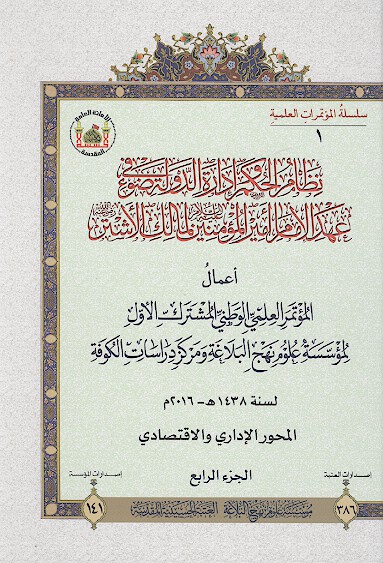 سلسلة المؤتمرات العلمية
١
نظام الحكم وإدارة الدولة في ضوء
عهد الإمام أمير المؤمنين عليه السلام لمالك الأشتر
أعمال
المؤتمر العلمي الوطني المشترك الأول
لمؤسسة علوم نهج البلاغة ومركز دراسات الكوفة
لسنة ١٤٣٨هـ - ٢٠١٦م
المحور الإداري والاقتصادي
الجزء الرابع
إصدارات العتبة
إصدارات المؤسسة
٣٨٦
مؤسسة علوم نهج البلاغة العتبة الحسينية المقدسة
١٤١